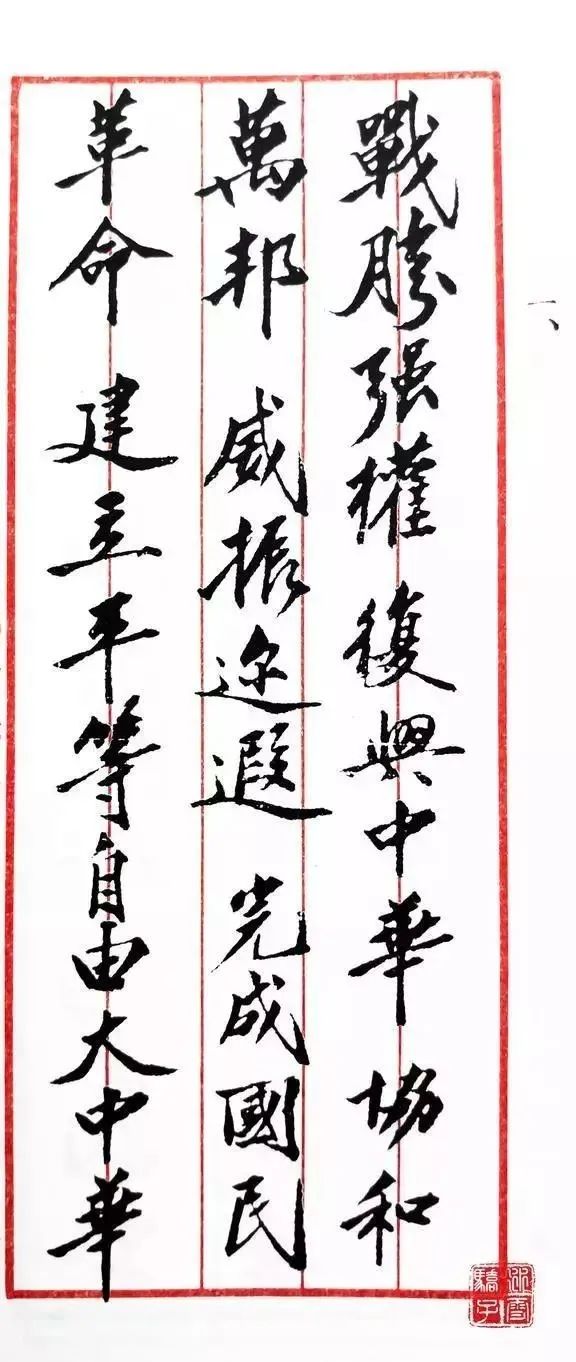 一、
戰勝强權 復興中華 協和
萬邦 威振迩遐 完成國民
革命 建立平等自由大中華